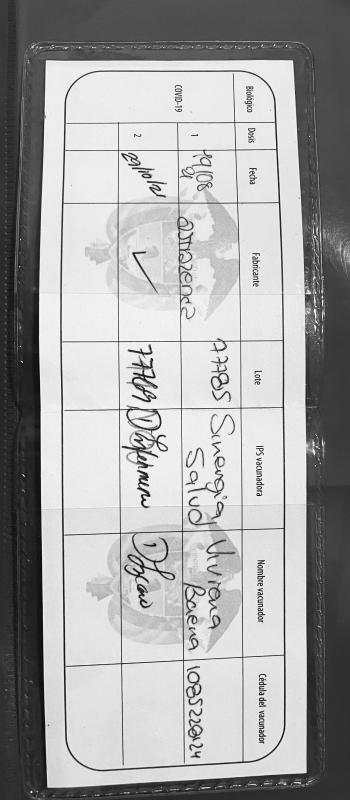 Biológico Dosis Fecha Fabricante Lote IPS vacunadora Nombre vacunador Cédula del vacunador
COVID-19
1 19/08 21 astrazeneca 77785 Sinergia Salud Viviana Baena 1085226124
2 29/10/21 77769